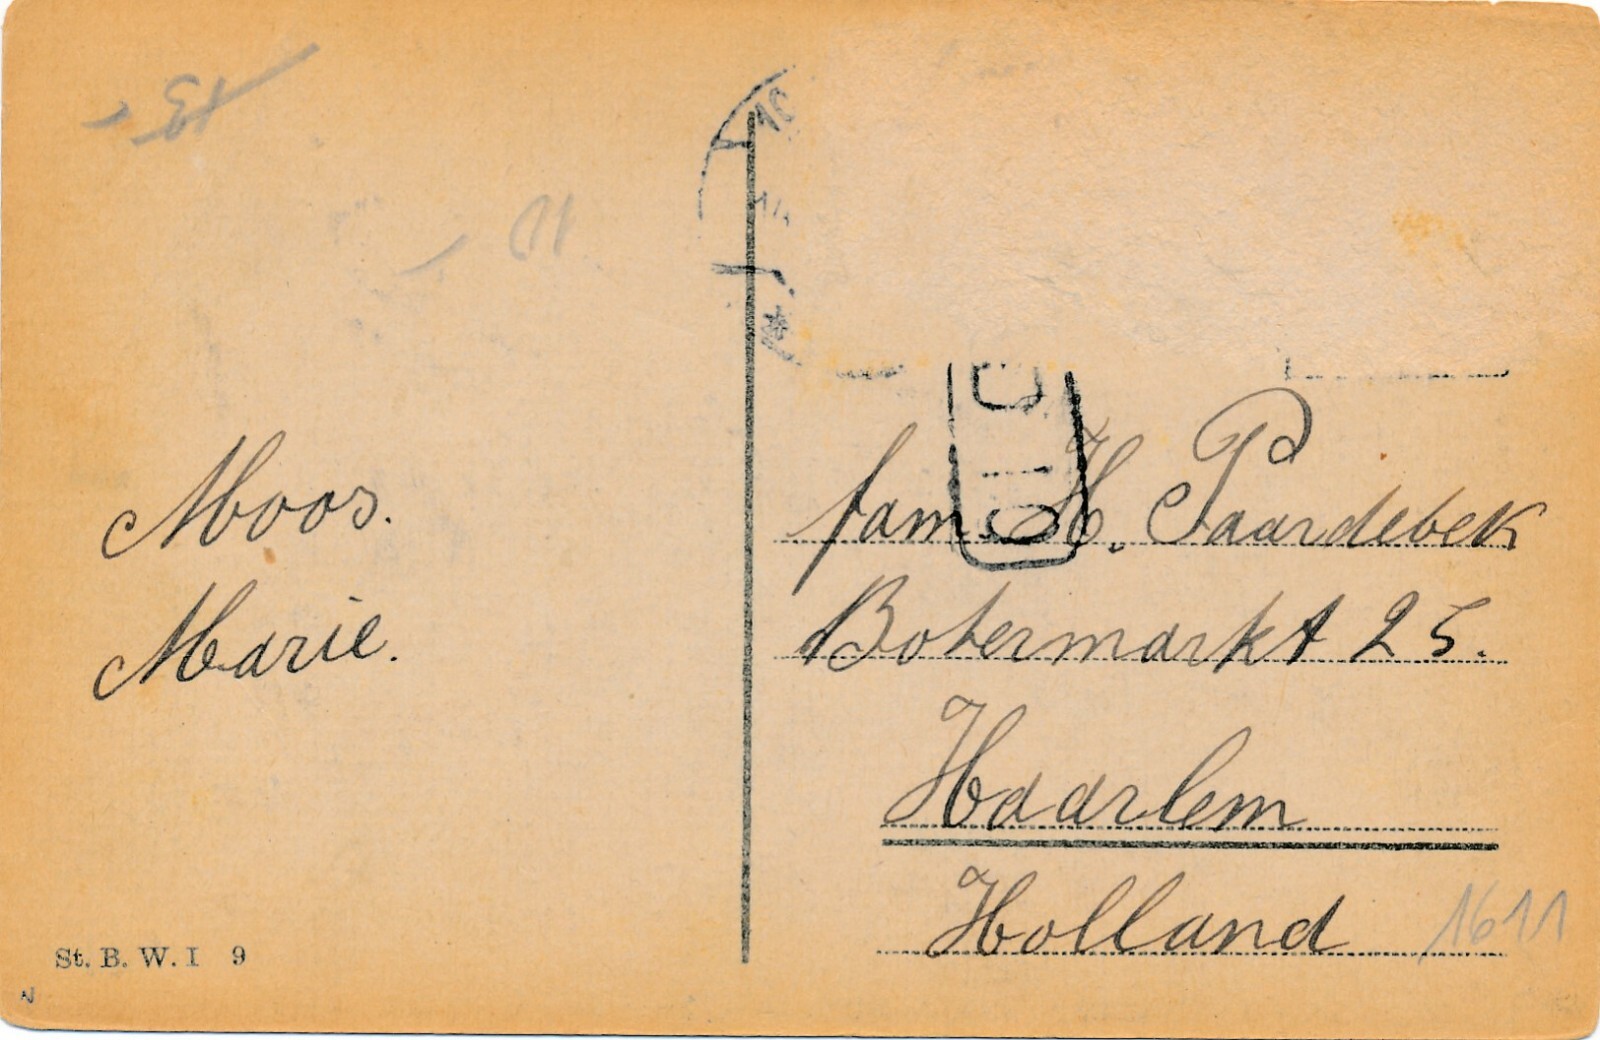 13 -
10 -
Moos.
Marie.
fam. H. Paardebek
Botermarkt 25.
Haarlem
Holland
1611
St. B. W. I 9